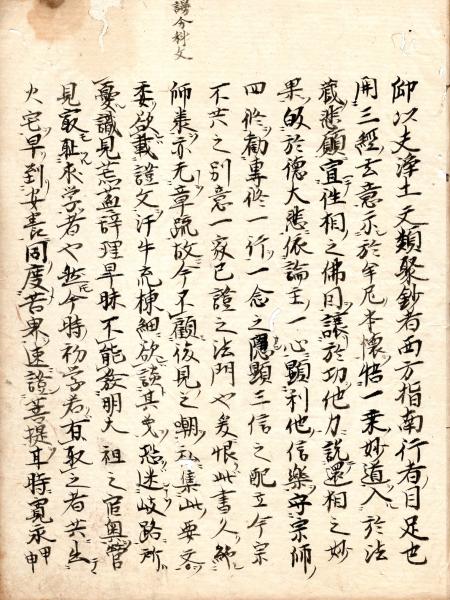 仰以夫浄土文類聚鈔者西方指南行者目足也
開三經玄意示於牟尼本懷悟一乗妙道入於法
蔵悲願宣性相之佛因讓於功他力説還相之妙
果皈於德大悲依論主一心顕利他信樂守宗師
四修勸專修一行一念之隱顕三信之配立今宗
不共之別意一家已證之法門也爰恨此書久絶
師素亦无章疏故今不顧後見之嘲私集此要文
委欲載證文汗牛充棟細欲談其恐迷岐路所
憂識見荒辞理早昧不能發明大祖之官奥
見敢耻求学者也然今時初学者有取之者共出
火宅早到安養同度苦果速證菩提耳時寛永甲申